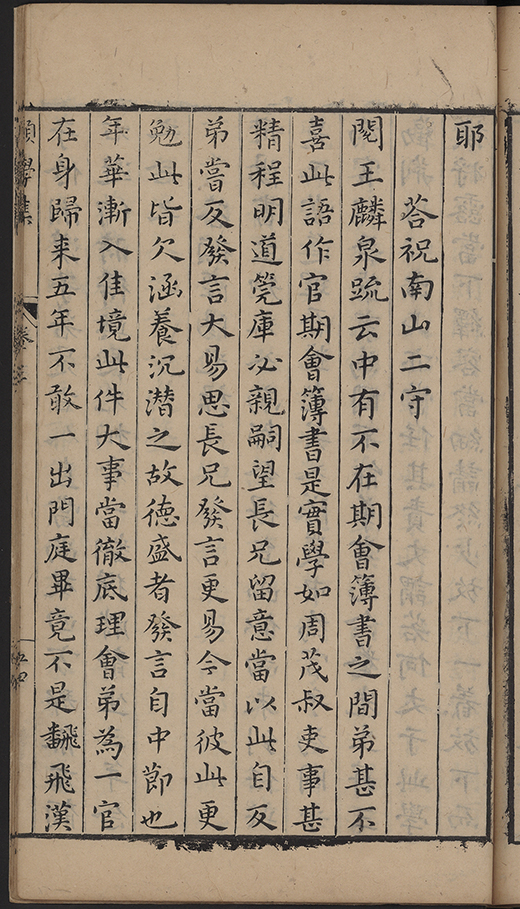 耶
荅祝南山二守
閱王麟泉䟽云中有不在期會簿書之間弟甚不
喜此語作官期會簿書是實學如周茂叔吏事甚
精程明道筦庫必親嗣望長兄留意當以此自反
弟嘗反發言大易思長兄發言更易今當彼此更
勉此皆欠涵養沉潛之故德盛者發言自中節也
年華漸入佳境此件大事當徹底理會弟為一官
在身歸来五年不敢一出門庭畢竟不是翻飛漢
願學集
卷三
五四